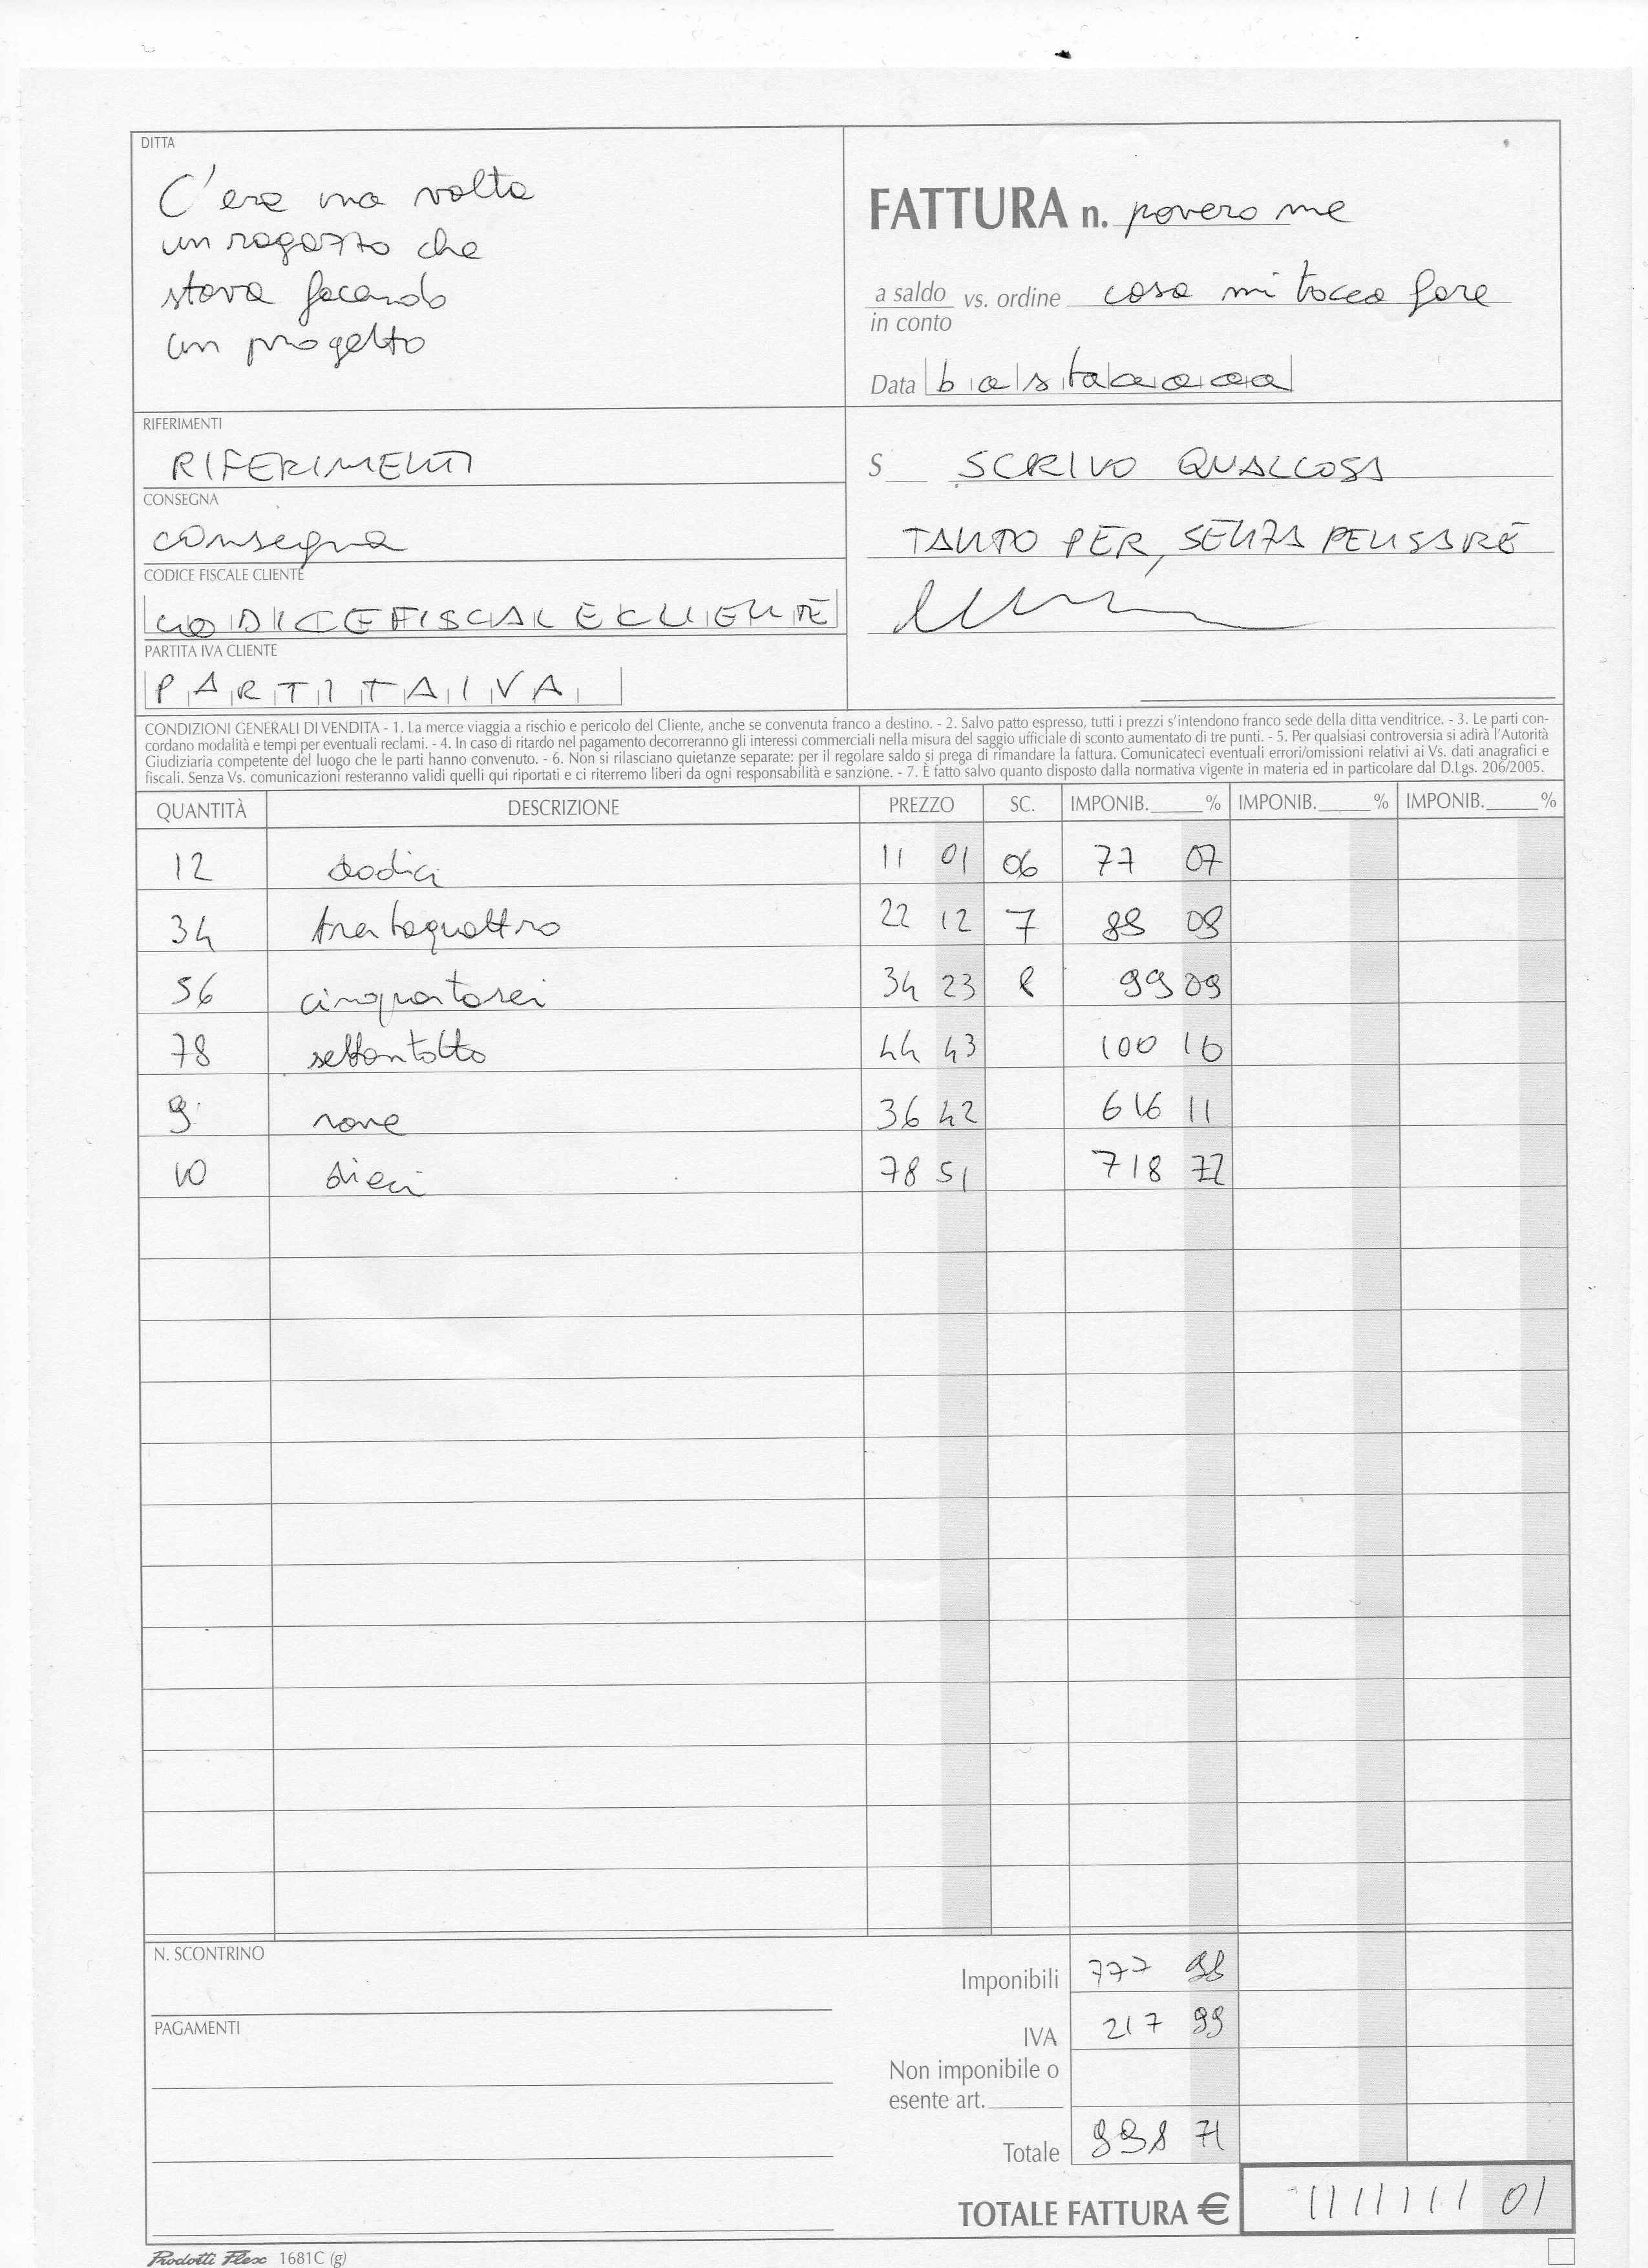 DITTA
C'era una volta
un ragazzo che
stava facendo
un progetto
FATTURA n. povero me
a saldo vs. ordine cosa mi tocca fare
in conto
Data bastaaaaa
RIFERIMENTI
RIFERIMENTI
CONSEGNA
consegna
CODICE FISCALE CLIENTE
CODICEFISCALECLIENTE
PARTITA IVA CLIENTE
PARTITAIVA
S__ SCRIVO QUALCOSA
TANTO PER, SENZA PENSARE
CONDIZIONI GENERALI DI VENDITA - 1. La merce viaggia a rischio e pericolo del Cliente, anche se convenuta franco a destino. - 2. Salvo patto espresso, tutti i prezzi s'intendono franco sede della ditta venditrice. - 3. Le parti con-
cordano modalità e tempi per eventuali reclami. - 4. In caso di ritardo nel pagamento decorreranno gli interessi commerciali nella misura del saggio ufficiale di sconto aumentato di tre punti. - 5. Per qualsiasi controversia si adirà l'Autorità
Giudiziaria competente del luogo che le parti hanno convenuto. - 6. Non si rilasciano quietanze separate: per il regolare saldo si prega di rimandare la fattura. Comunicateci eventuali errori/omissioni relativi ai Vs. dati anagrafici e
fiscali. Senza Vs. comunicazioni resteranno validi quelli qui riportati e ci riterremo liberi da ogni responsabilità e sanzione. - 7. È fatto salvo quanto disposto dalla normativa vigente in materia ed in particolare dal D.Lgs. 206/2005.
QUANTITÀ DESCRIZIONE PREZZO SC. IMPONIB.____% IMPONIB.____% IMPONIB.____%
12 dodici 11 01 06 77 07
34 trentaquattro 22 12 7 88 08
56 cinquantasei 34 23 8 99 09
78 settantotto 44 43 100 10
9 nove 36 42 616 11
10 dieci 78 51 718 72
N. SCONTRINO
Imponibili 777 98
PAGAMENTI
IVA 217 99
Non imponibile o
esente art.______
Totale 998 71
TOTALE FATTURA € 1111111 01
Prodotti Flex 1681C (g)